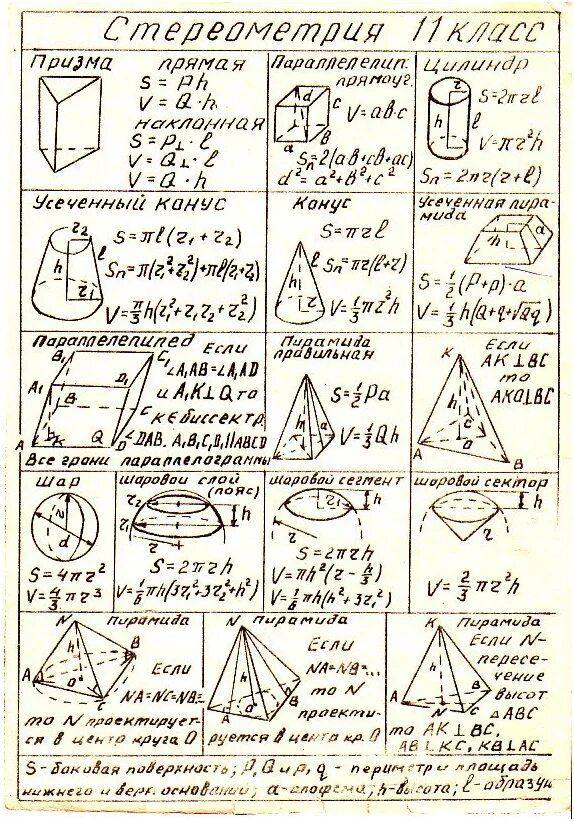 Стереометрия 11 класс
Призма
прямая
S = Ph
V = Q·h
наклонная
S = P⊥·l
V = Q⊥·l
V = Q·h
Параллелепип.
прямоуг.
d
c
a
в
V = aв·c
Sп=2(aв+cв+ac)
d² = a²+в²+c²
Цилиндр
r
h
l
S=2πrl
V=πr²h
Sп=2πr(r+l)
Усеченный конус
r₂
h
l
r₁
S=πl(r₁+r₂)
Sп=π(r₁²+r₂²)+πl(r₁+r₂)
V=π/3 h(r₁²+r₁r₂+r₂²)
Конус
h
l
r
S=πrl
Sп=πr(l+r)
V=1/3 πr²h
Усеченная пира-
мида
h
a
S=1/2(P+p)·a
V=1/3 h(Q+q+√Qq)
Параллелепипед
B₁
C₁
A₁
D₁
B
C
A
K
Q
D
Если
∠A₁AB=∠A₁AD
и A₁K⊥Q то
K∈биссектр.
∠DAB. A₁B₁C₁D₁∥ABCD
Все грани параллелограммы
Пирамида
правильная
h
a
S=1/2 Pa
V=1/3 Qh
K
A
C
O
B
Если
AK⊥BC
то
AKO⊥BC
Шар
r
d
S=4πr²
V=4/3 πr³
Шаровой слой
(пояс)
r₂
r₁
h
r
S=2πrh
V=1/6 πh(3r₁²+3r₂²+h²)
Шаровой сегмент
r₁
h
r
S=2πrh
V=πh²(r-h/3)
V=1/6 πh(h²+3r₁²)
Шаровой сектор
h
r
V=2/3 πr²h
Пирамида
N
h
A
B
O
C
Если
NA=NC=NB=
то N проектирует-
ся в центр круга O
Пирамида
N
h
A
O
B
Если
NA=NB=...
то N
проекти-
руется в центр кр. O
Пирамида
K
h
A
B
N
C
Если N-
пересе-
чение
высот
△ABC
то AK⊥BC,
AB⊥KC, KB⊥AC
S-боковая поверхность; P,Q и p,q - периметр и площадь
нижнего и верх. оснований; a-апофема; h-высота; l-образую